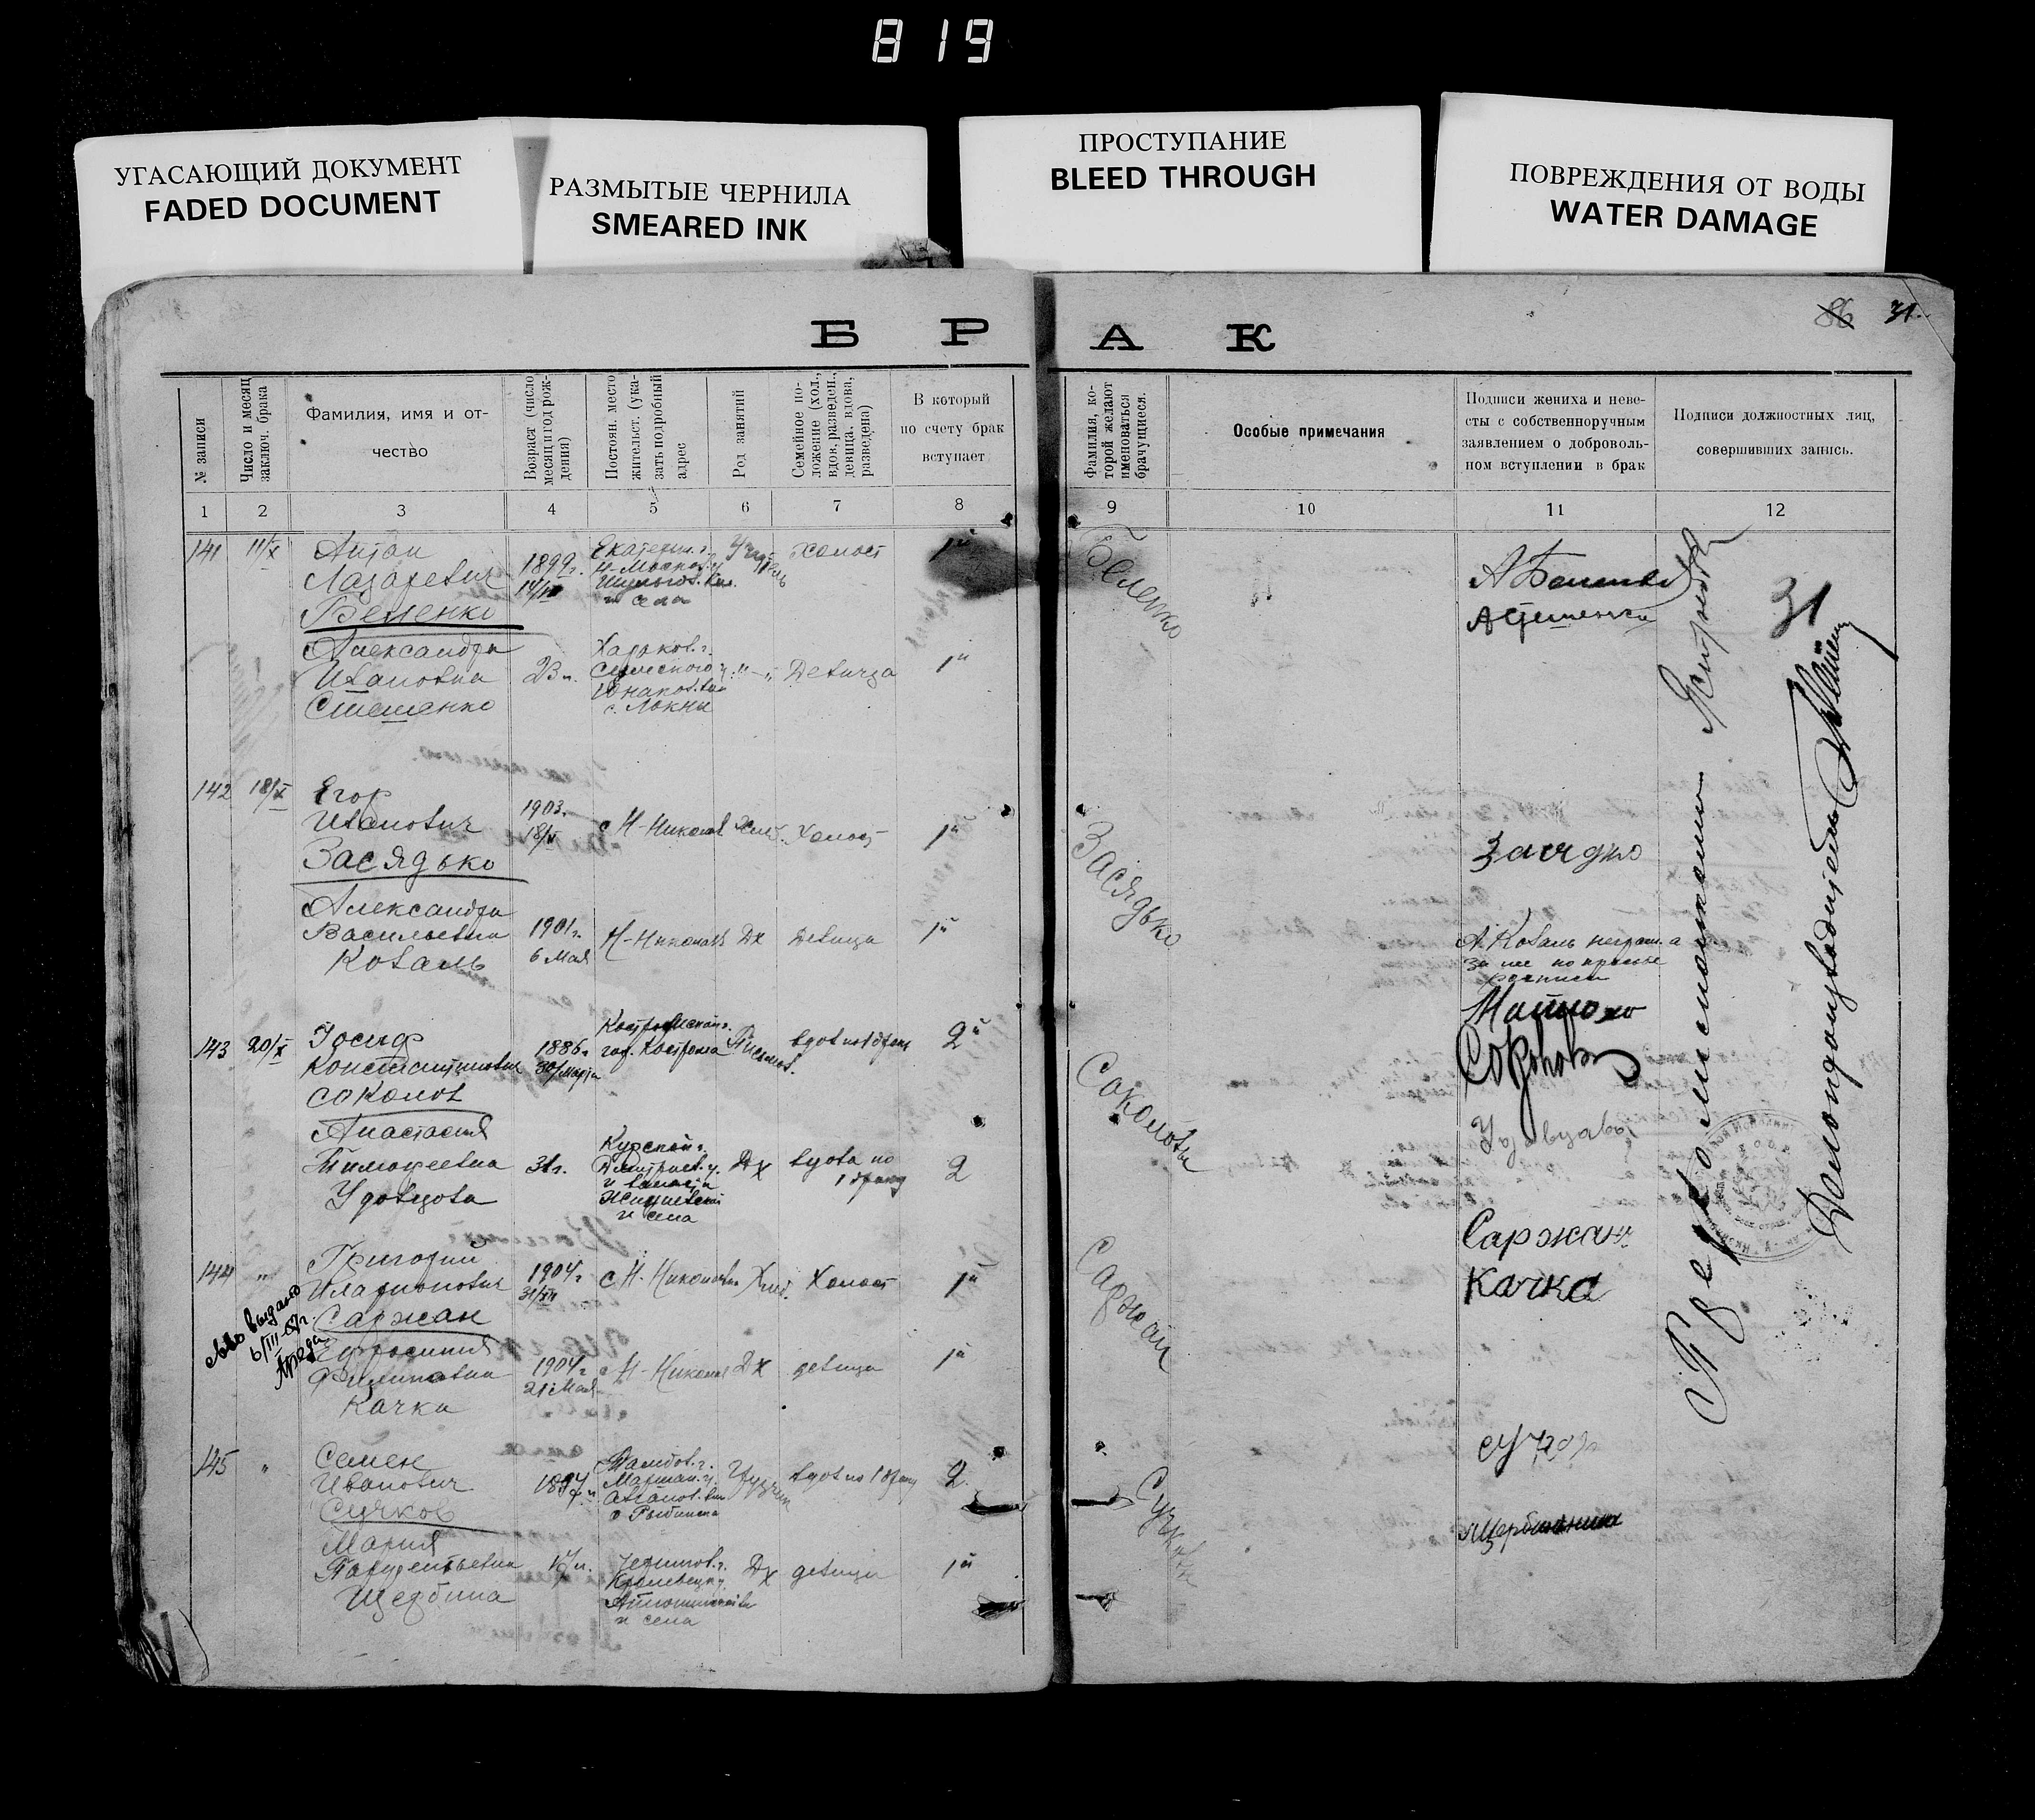 819
УГАСАЮЩИЙ ДОКУМЕНТ
FADED DOCUMENT
РАЗМЫТЫЕ ЧЕРНИЛА
SMEARED INK
ПРОСТУПАНИЕ
BLEED THROUGH
ПОВРЕЖДЕНИЯ ОТ ВОДЫ
WATER DAMAGE
86 31
Б Р А К
№ записи
Число и месяц
заключ. брака
Фамилия, имя и от-
чество
Возраст (число
месяц и год рож-
дения)
Постоян. место
жительст. (ука-
зать подробный
адрес
Род занятий
Семейное по-
ложение (хол.,
вдов, разведен.,
девица, вдова,
разведена)
В который
по счету брак
вступает
Фамилия, ко-
торой желают
именоваться
брачущиеся.
Особые примечания
Подписи жениха и неве-
сты с собственноручным
заявлением о доброволь-
ном вступлении в брак
Подписи должностных лиц,
совершивших запись.
1 2 3 4 5 6 7 8 9 10 11 12
141 11/X
Антон
Лазаревич
Беленко
1899г.
Екатерин. г.
и села
Учитель
холост
1й
Беленко
Александра
Ивановна
Стешенко
23 л.
Харьков. г.
Сумского у.
с. Локни
Девица
1й
31
142 18/X
Егор
Иванович
Засядько
1903г.
с Н-Николаев
Холост
1й
Засядько
Александра
Васильевна
Коваль
1901г.
6 Мая
Н-Николаев
Дх
Девица
1й
А. Коваль неграм. а
за нее по просьбе
143 20/X
Иосиф
Константинович
Соколов
1886г.
30/Марта
гор. Кострома
вдов по 1 браку
2й
Соколовы
Соколов
Анастасия
Тимофеевна
Удовцова
31г.
Курской г.
Дмитриев. у.
и села
Дх
вдова по
1 браку
2
144 "
Григорий
Иларионович
Саржан
1904г
31/XII
с Н-Николаев
Хлеб.
Холост
1й
Саржан
Саржан
Качка
выдано
6/III-57г.
Ефросиния
Филиповна
Качка
1904г
21 Мая
с Н-Николаев
Дх
девица
1й
145 "
Семен
Иванович
Сучков
Тамбов. г.
Грузчик
вдов по 1 браку
2
Сучковы
Мария
Щербина
17 л.
Чернигов. г.
Кролевец у.
и села
Дх
девица
1й
Делопроизводитель